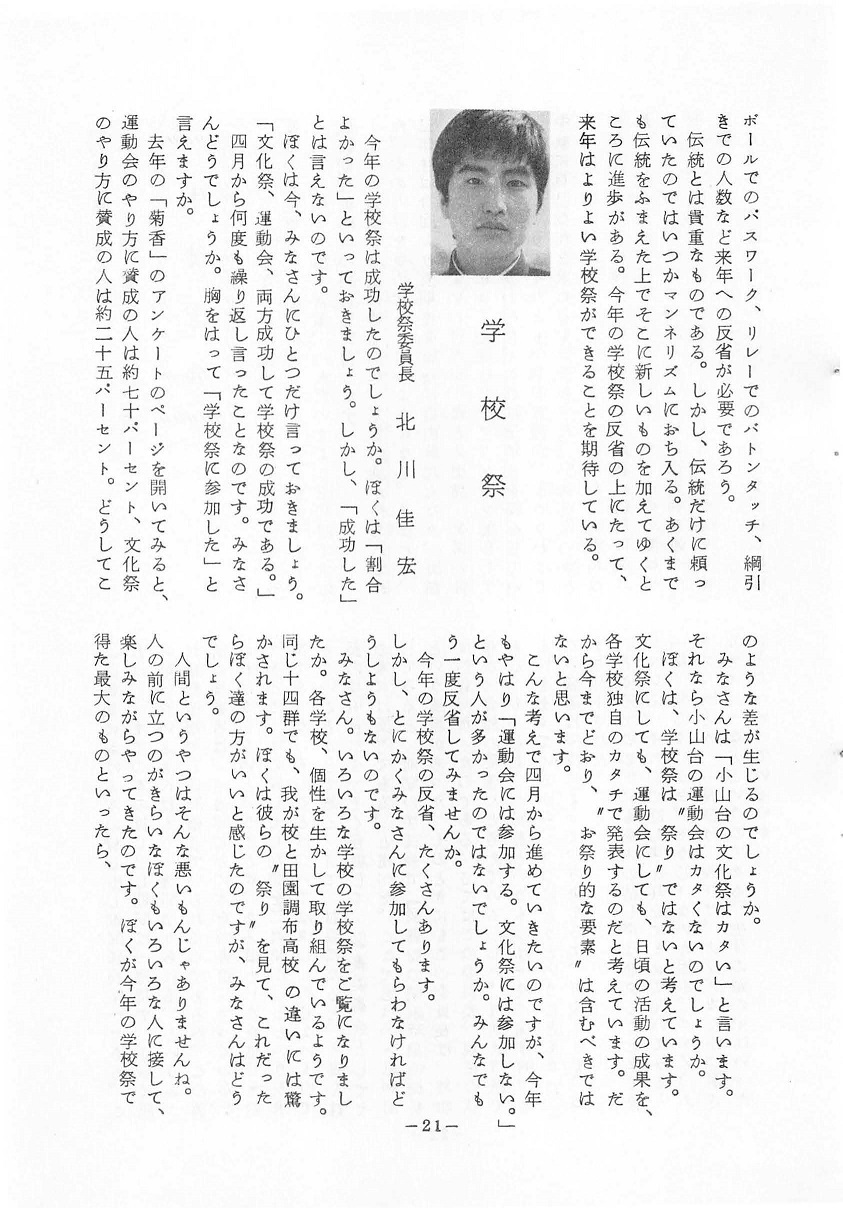 ボールでのパスワーク、リレーでのバトンタッチ、綱引
きでの人数など来年への反省が必要であろう。
伝統とは貴重なものである。しかし、伝統だけに頼っ
ていたのではいつかマンネリズムにおち入る。あくまで
も伝統をふまえた上でそこに新しいものを加えてゆくと
ころに進歩がある。今年の学校祭の反省の上にたって、
来年はよりよい学校祭ができることを期待している。
学校祭
学校祭委員長 北川佳宏
今年の学校祭は成功したのでしょうか。ぼくは「割合
よかった」といっておきましょう。しかし、「成功した」
とは言えないのです。
ぼくは今、みなさんにひとつだけ言っておきましょう。
「文化祭、運動会、両方成功して学校祭の成功である。」
四月から何度も繰り返し言ったことなのです。みなさ
んどうでしょうか。胸をはって「学校祭に参加した」と
言えますか。
去年の「菊香」のアンケートのページを開いてみると、
運動会のやり方に賛成の人は約七十パーセント、文化祭
のやり方に賛成の人は約二十五パーセント。どうしてこ
のような差が生じるのでしょうか。
みなさんは「小山台の文化祭はカタい」と言います。
それなら小山台の運動会はカタくないのでしょうか。
ぼくは、学校祭は〝祭り〟ではないと考えています。
文化祭にしても、運動会にしても、日頃の活動の成果を、
各学校独自のカタチで発表するのだと考えています。だ
から今までどおり、〝お祭り的な要素〟は含むべきでは
ないと思います。
こんな考えで四月から進めていきたいのですが、今年
もやはり「運動会には参加する。文化祭には参加しない。」
という人が多かったのではないでしょうか。みんなでも
う一度反省してみませんか。
今年の学校祭の反省、たくさんあります。
しかし、とにかくみなさんに参加してもらわなければど
うしようもないのです。
みなさん。いろいろな学校の学校祭をご覧になりまし
たか。各学校、個性を生かして取り組んでいるようです。
同じ十四群でも、我が校と田園調布高校の違いには驚
かされます。ぼくは彼らの〝祭り〟を見て、これだった
らぼく達の方がいいと感じたのですが、みなさんはどう
でしょう。
人間というやつはそんな悪いもんじゃありませんね。
人の前に立つのがきらいなぼくもいろいろな人に接して、
楽しみながらやってきたのです。ぼくが今年の学校祭で
得た最大のものといったら、
—21—